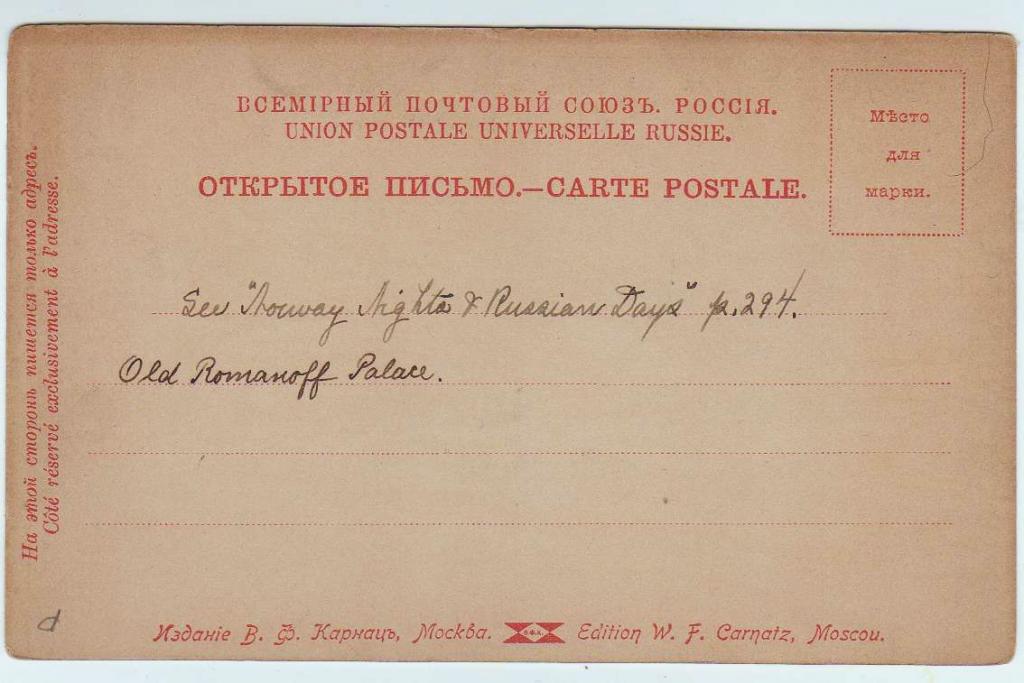 ВСЕМІРНЫЙ ПОЧТОВЫЙ СОЮЗЪ. РОССІЯ.
UNION POSTALE UNIVERSELLE RUSSIE.
ОТКРЫТОЕ ПИСЬМО.—CARTE POSTALE.
Мѣсто
для
марки.
На этой сторонѣ пишется только адресъ.
Côté réservé exclusivement à l'adresse.
See "Norway Nights & Russian Days" p. 294.
Old Romanoff Palace.
d
Изданіе В. Ф. Карнацъ, Москва.
В.Ф.К.
Edition W. F. Carnatz, Moscou.